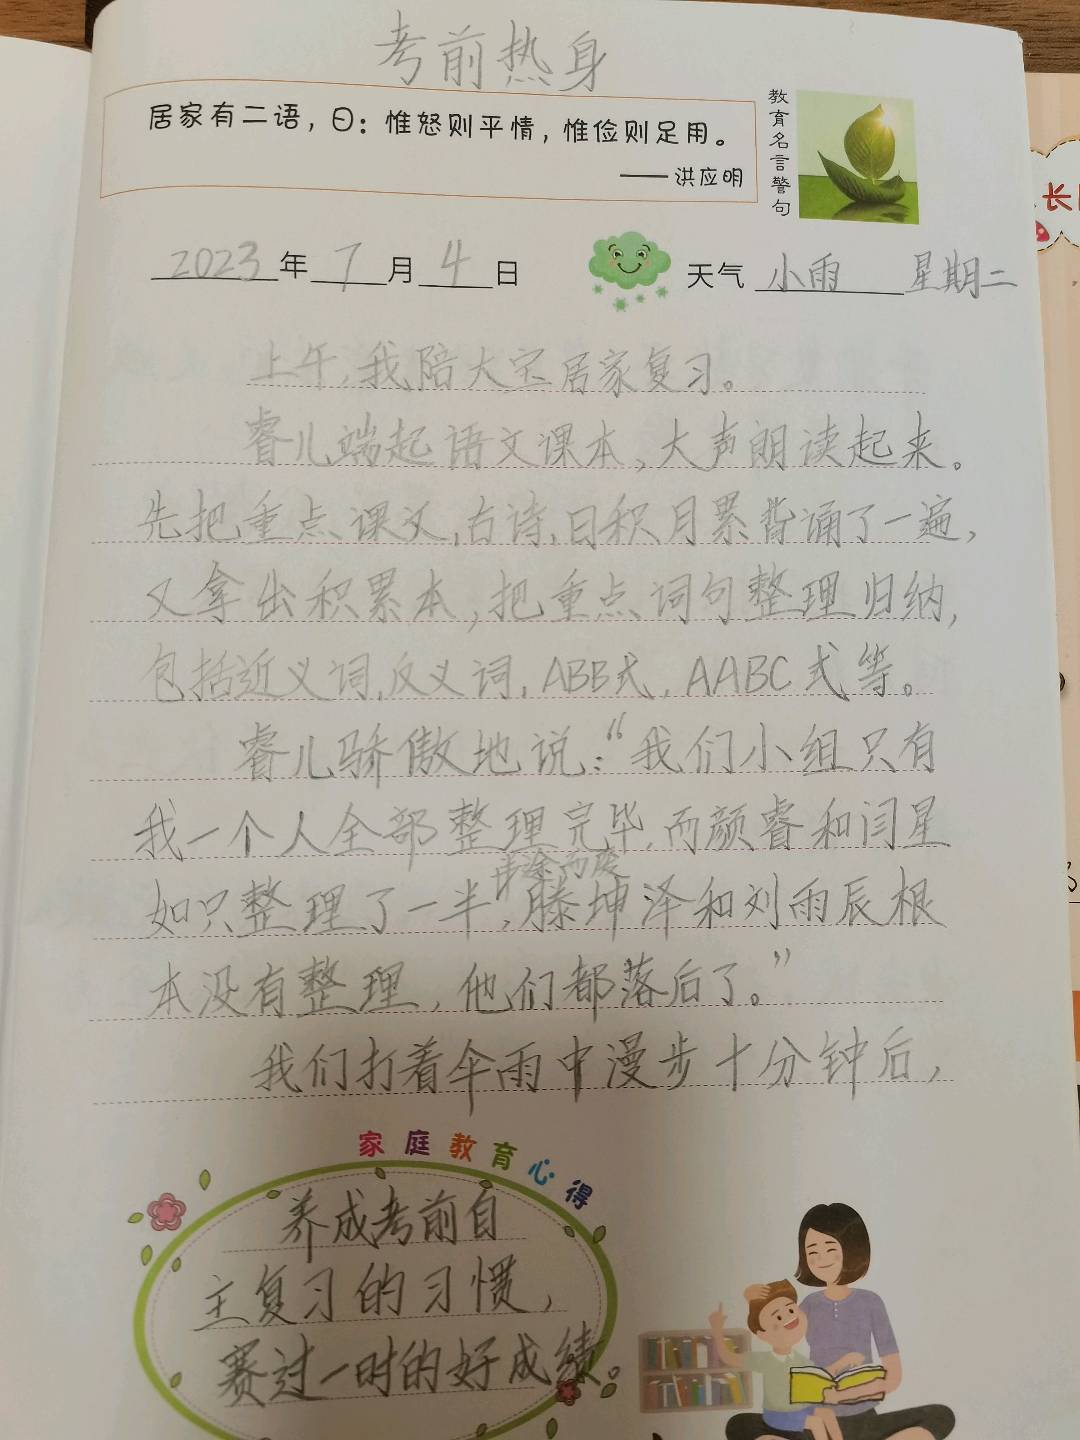 考前热身
居家有二语，曰：惟怒则平情，惟俭则足用。
——洪应明
教育名言警句
2023年7月4日
天气 小雨 星期二
上午，我陪大宝居家复习。
睿儿端起语文课本，大声朗读起来。
先把重点课文，古诗，日积月累背诵了一遍，
又拿出积累本，把重点词句整理归纳，
包括近义词，反义词，ABB式，AABC式等。
睿儿骄傲地说：“我们小组只有
我一个人全部整理完毕，而颜睿和闫星
半途而废
如只整理了一半，滕坤泽和刘雨辰根
本没有整理，他们都落后了。”
我们打着伞雨中漫步十分钟后，
家庭教育心得
养成考前自
主复习的习惯，
赛过一时的好成绩。
长